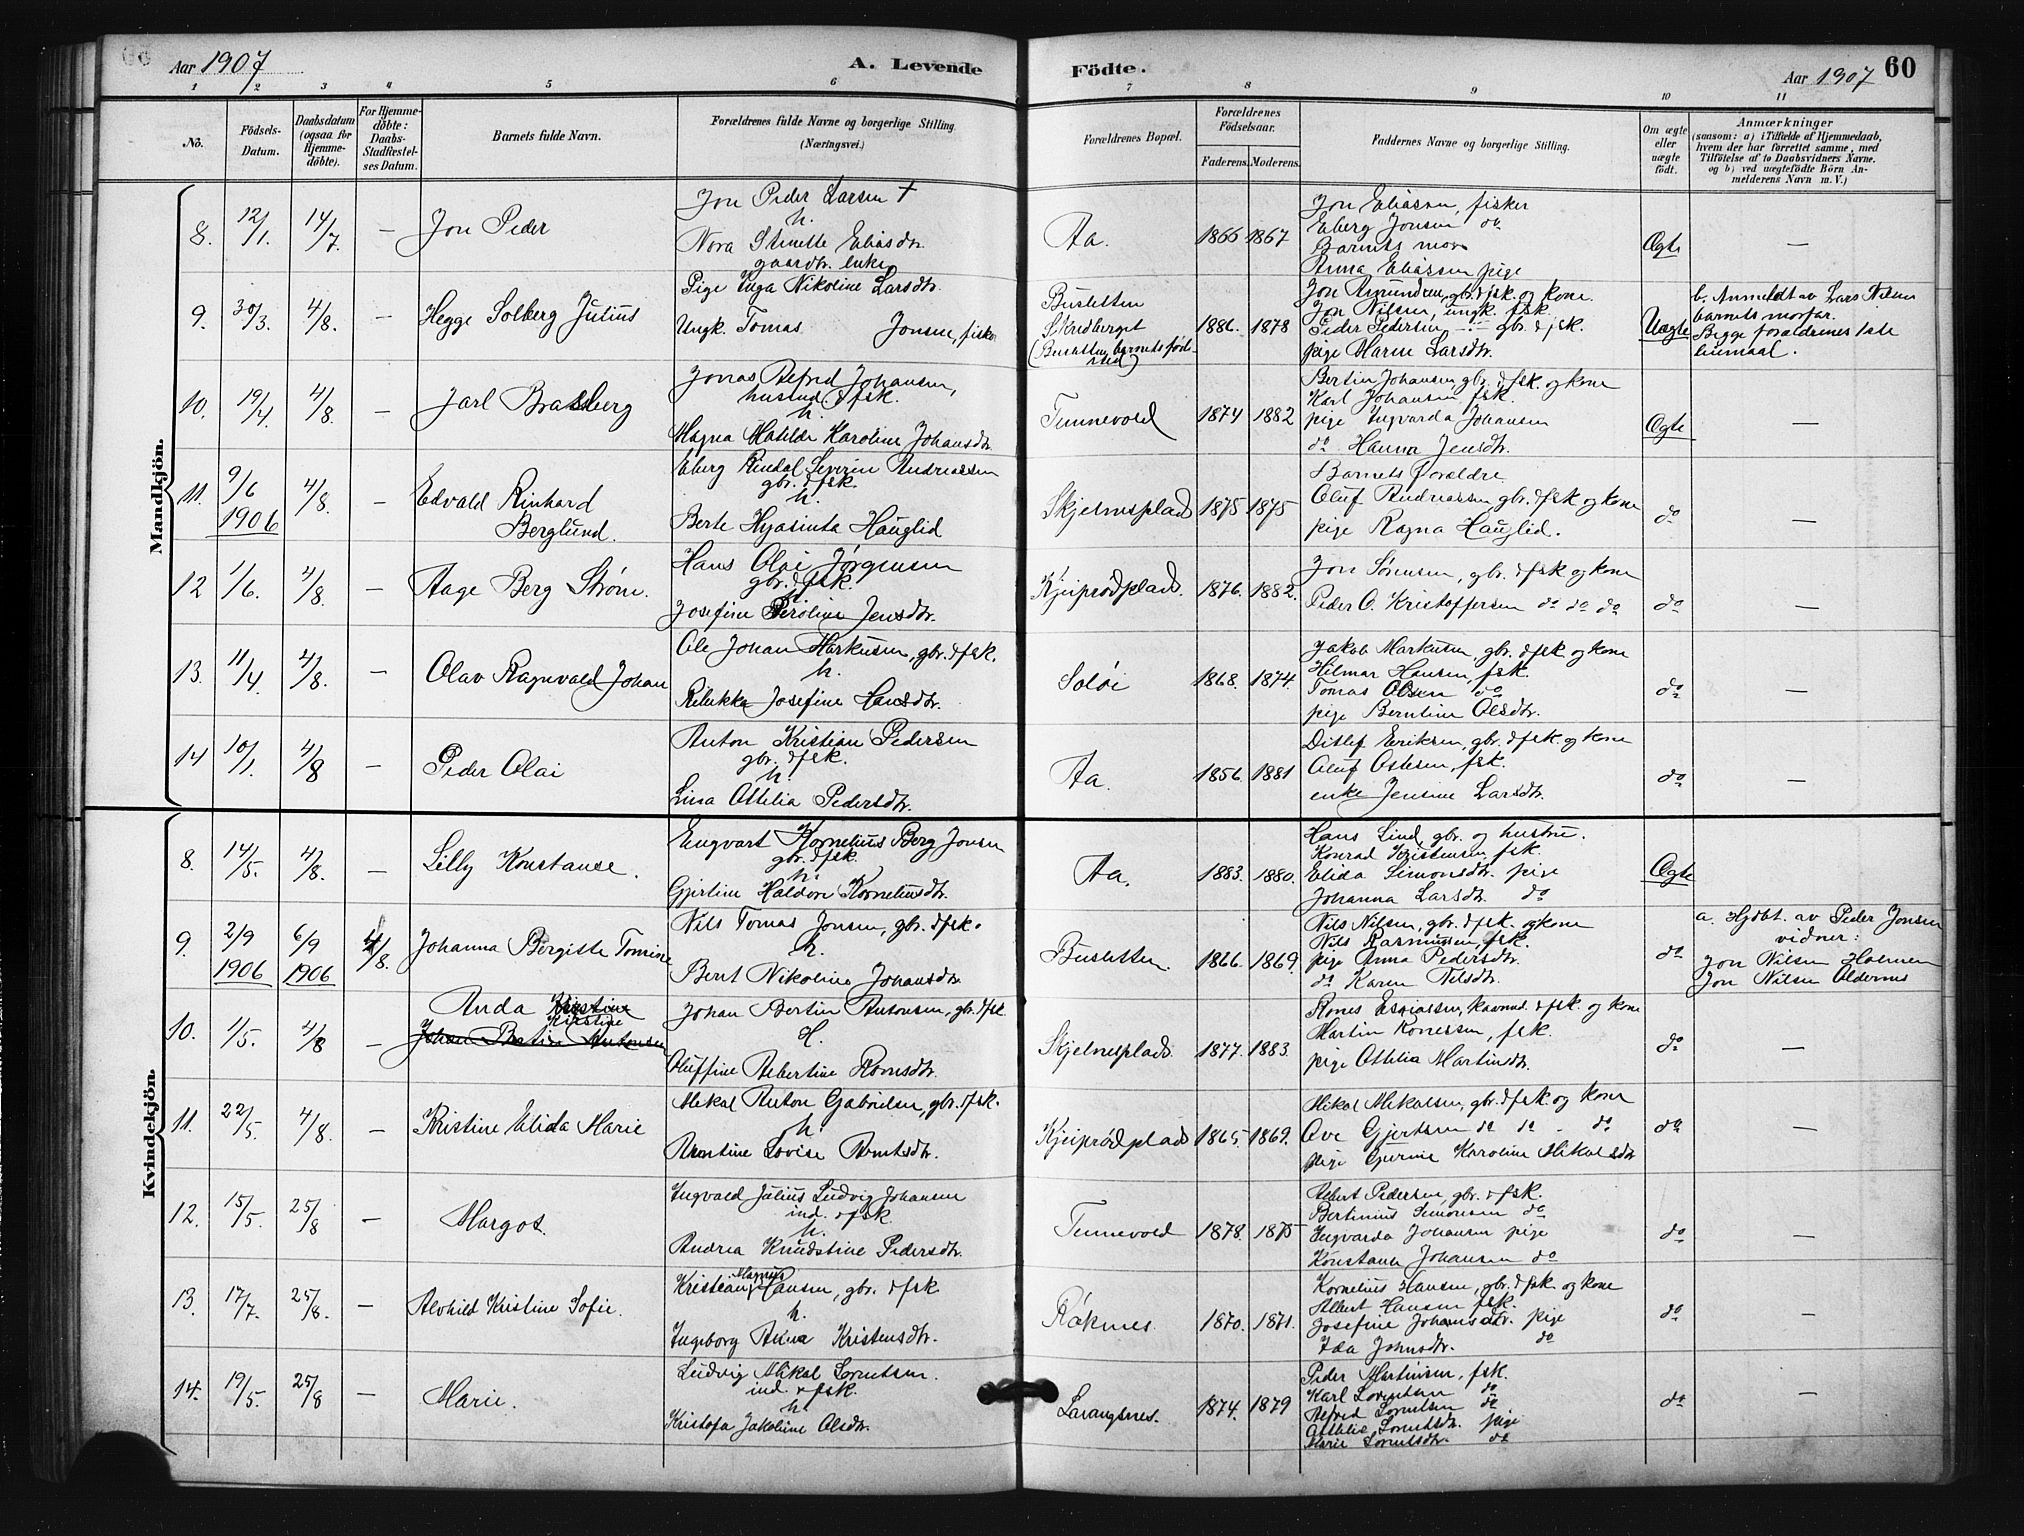 Aar 1907
A. Levende Födte.
Aar 1907 60
1 2 3 4 5 6 7 8 9 10 11
No.
Födsels-Datum.
Daabsdatum (ogsaa for Hjemmedöbte).
For Hjemmedöbte: Daabs-Stadfæstelses Datum.
Barnets fulde Navn.
Forældrenes fulde Navne og borgerlige Stilling. (Næringsvei.)
Forældrenes Bopæl.
Forældrenes Födselsaar.
Faderens. Moderens.
Faddernes Navne og borgerlige Stilling.
Om ægte eller uægte födt.
Anmærkninger
(saasom: a) i Tilfælde af Hjemmedaab, hvem der har forrettet samme, med Tilföielse af to Daabsvidners Navne. og b) ved uægtefödte Börn Anmelderens Navn m. V.)
Mandkjön.
8. 12/1. 14/7. — Jon Peder
Jon Peder Larsen +
h.
Nora Stinette Eliasdtr.
gaardbr. enke
Aa. 1866 1867
Jon Eliassen, fisker
Eberg Jonsen do
Barnets mor
Anna Eliassen pige
Ægte —
9. 30/3. 4/8. — Hegge Solberg Julius
Pige Inga Nikoline Larsdtr.
Ungk. Tomas Jonsen, fisker
Busletten
Skredberget
(Busletten barnets fødested)
1886. 1878
Jon Amundsen, gbr. & fsk. og kone.
Jon Nilsen, ungk. fsk.
Peder Pedersen gbr. & fsk.
pige Maren Larsdtr.
Uægte
b. Anmeldt av Lars Nilsen
barnets morfar.
Begge forældrenes 1ste
leiemaal.
10. 19/4. 4/8. — Jarl Brasberg
Jonas Alfred Johansen,
husmd. & fsk.
h.
Magna Matilde Karoline Johansdtr.
Tennevold 1874 1882
Bertin Johansen, gbr. & fsk. og kone
Karl Johansen fsk.
pige Ingvarda Johansen
do Hanna Jensdtr.
Ægte —
11. 9/6 1906 4/8. — Edvald Rinhard
Berglund.
Eberg Rindal Severin Andreassen
gbr. & fsk.
h.
Berte Hyasinta Hauglid
Skjelnesplads 1875 1875
Barnets forældre
Oluf Andreassen, gbr. & fsk. og kone
pige Ragna Hauglid.
do —
12 1/6. 4/8. — Aage Berg Strøm.
Hans Olai Jørgensen
gbr. & fsk.
h.
Josefine Peroline Jensdtr.
Kjeiprødplads. 1876. 1882.
Jon Sørensen, gbr. & fsk og kone
Peder O. Kristoffersen do do do
do —
13. 11/4. 4/8. — Olav Ragnvald Johan
Ole Johan Markusen, gbr. & fsk.
h.
Rebekka Josefine Hansdtr.
Soløi 1868. 1874.
Jakob Markusen, gbr. & fsk og kone
Hilmar Hansen, fsk.
Tomas Olsen do
pige Berntine Olsdtr.
do —
14 10/1. 4/8 — Peder Olai
Anton Kristian Pedersen
gbr. & fsk.
h.
Lina Ottelia Pedersdtr.
Aa. 1856. 1881
Ditlef Eriksen, gbr. & fsk. og kone
Oluf Ostesen, fsk.
enke Jensine Larsdtr.
do —
Kvindekjön.
8. 14/5. 4/8. — Lilly Konstanse.
Engvart Kornelius Berg Jonsen
gbr. & fsk.
h.
Gjertine Haldore Korneliusdtr.
Aa. 1883. 1880.
Hans Lind, gbr. og hustru.
Konrad Kristensen, fsk.
Elida Simonsdtr. pige
Johanna Larsdtr. do
Ægte
9. 2/9 1906 6/9 1906 4/8. Johanna Bergitte Tomine
Nils Tomas Jonsen, gbr. & fsk.
h.
Berit Nikoline Johansdtr.
Busletten. 1866. 1869.
Nils Nilsen, gbr. & fsk. og kone
Nils Rasmussen, fsk.
pige Anna Pedersdtr.
do Karen Nilsdtr.
do
a. Hjdbt. av Peder Jonsen
vidner:
Jon Nilsen Holmen
Jon Nilsen Oldernes
10. 1/5. 4/8 — Anda Kristine
Kirstine
Johan Bertin Antonsen
Johan Bertin Antonsen, gbr. & fsk.
H.
Oluffine Albertine Ronesdtr.
Skjelnesplads. 1877. 1883.
Rones Essaiassen, kaarmd. & fsk. og kone
Martin Ronessen, fsk.
pige Ottelia Martinsdtr.
do —
11. 22/5. 4/8. — Kristine Elida Marie
Mekal Anton Gabrielsen, gbr. & fsk.
h.
Arntine Lovise Arntsdtr.
Kjeiprødplads 1865. 1869.
Mikal Mikalsen, gbr. & fsk. og kone
Ove Gjertsen do do - do
pige Gurine Karoline Mikalsdtr
do —
12. 15/5. 25/8 — Margot.
Ingvald Julius Ludvig Johansen
ind. & fsk.
h.
Andrea Knudstine Pedersdtr.
Tennevold 1878. 1875
Albert Pedersen, gbr. & fsk.
Bertinius Simonsen do
Ingvarda Johansen pige
Konstanse Johansen do
do —
13. 17/7. 25/8. — Alvhild Kristine Sofie.
Kristian Magnus Hansen, gbr. & fsk
h.
Ingeborg Anna Kristensdtr.
Røknes 1870. 1871.
Kornelius Hansen, gbr. & fsk. og kone
Albert Hansen fsk.
Josefine Johansdtr. pige
Ida Johnsdtr. do
do —
14. 19/5. 25/8 — Marie.
Ludvig Mikal Lorentsen.
ind. & fsk.
h.
Kristofa Jakobine Olsdtr.
Lavangsnes. 1874. 1879
Peder Martinsen, fsk.
Karl Lorentsen do
Alfred Lorentsen do
Ottelie Lorentsdtr. pige
Marie Lorentsdtr. do
do —